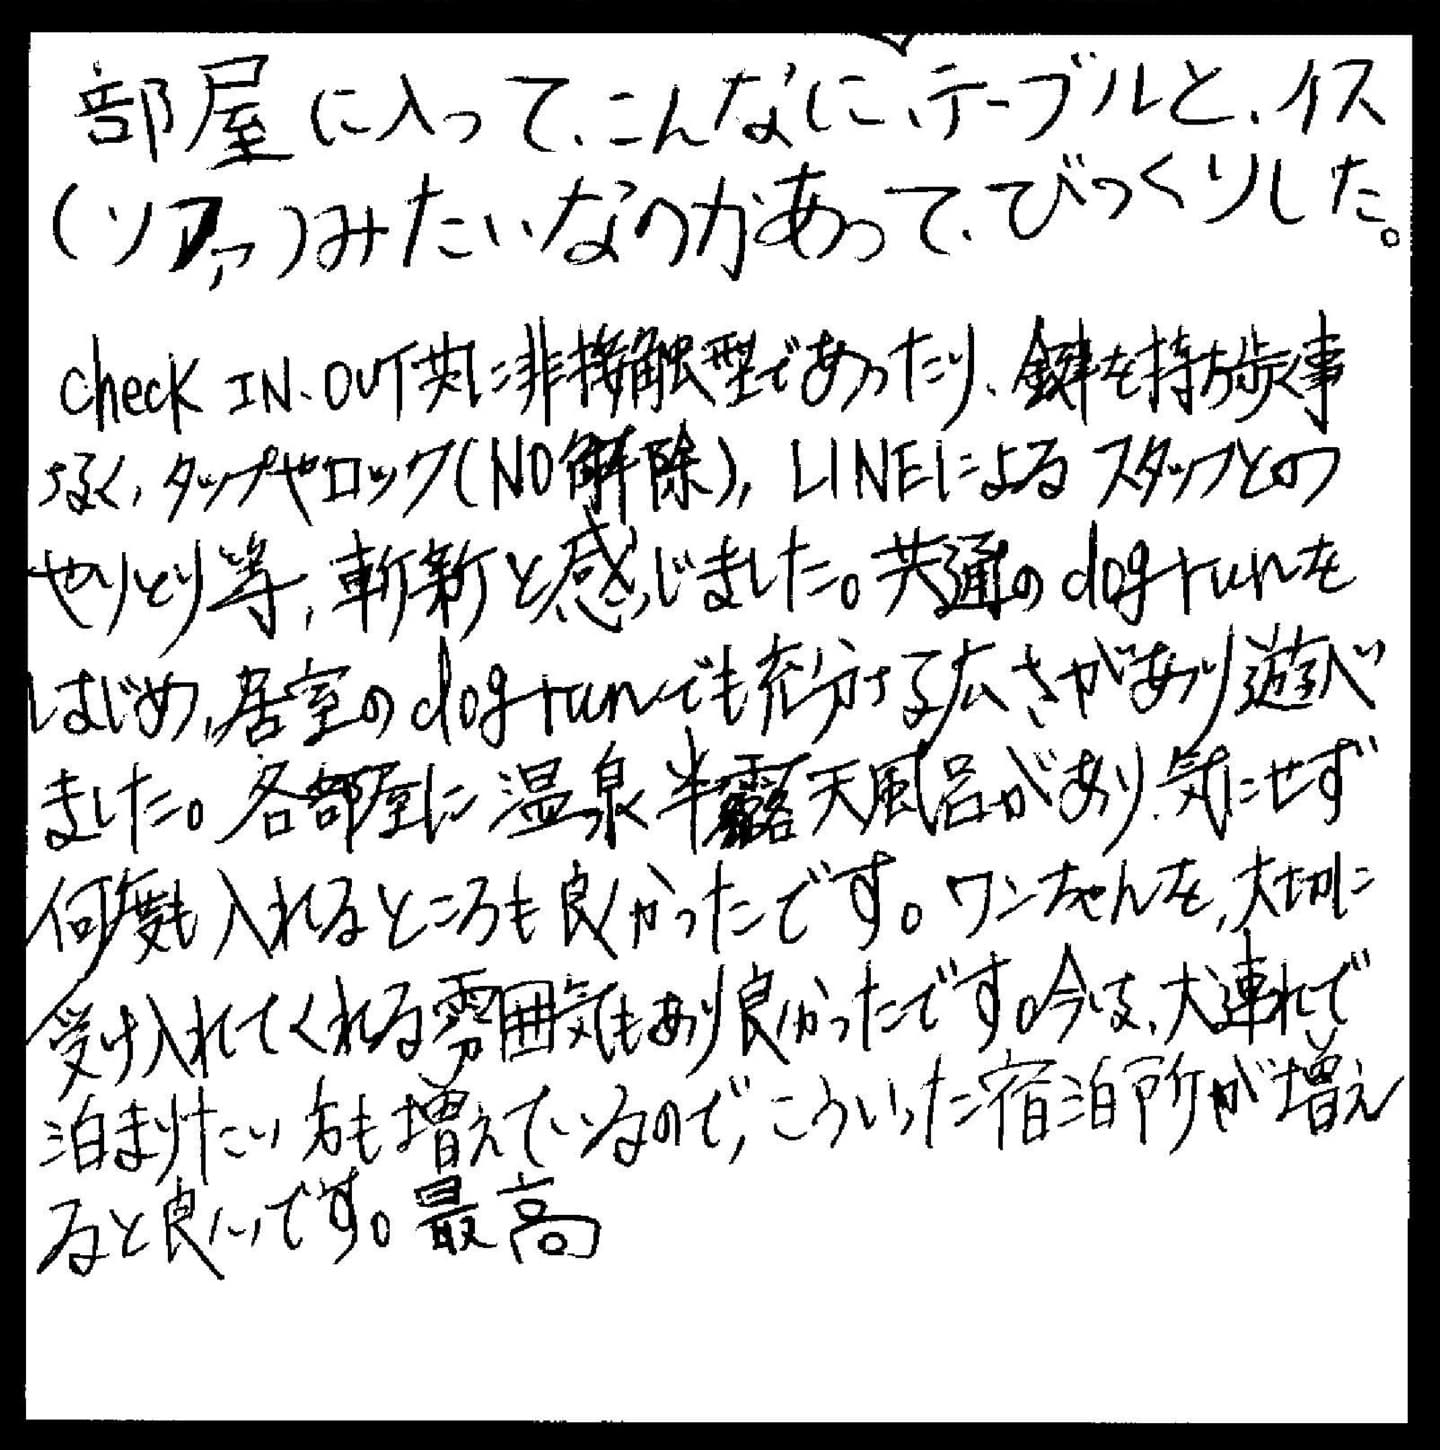 部屋に入って、こんなに、テーブルと、イス
(ソファ)みたいなのがあって、びっくりした。
check IN、OUT共に非接触型であったり、鍵を持ち歩く事
なく、タップやロック(NO解除)、LINEによるスタッフとの
やりとり等、斬新と感じました。共通のdog runを
はじめ、居室のdog runでも充分な広さがあり遊べ
ました。各部屋に温泉半露天風呂があり、気にせず
何度も入れるところも良かったです。ワンちゃんを、大切に
受け入れてくれる雰囲気もあり良かったです。今は、犬連れで
泊まりたい方も増えているので、こういった宿泊所が増え
ると良いです。最高